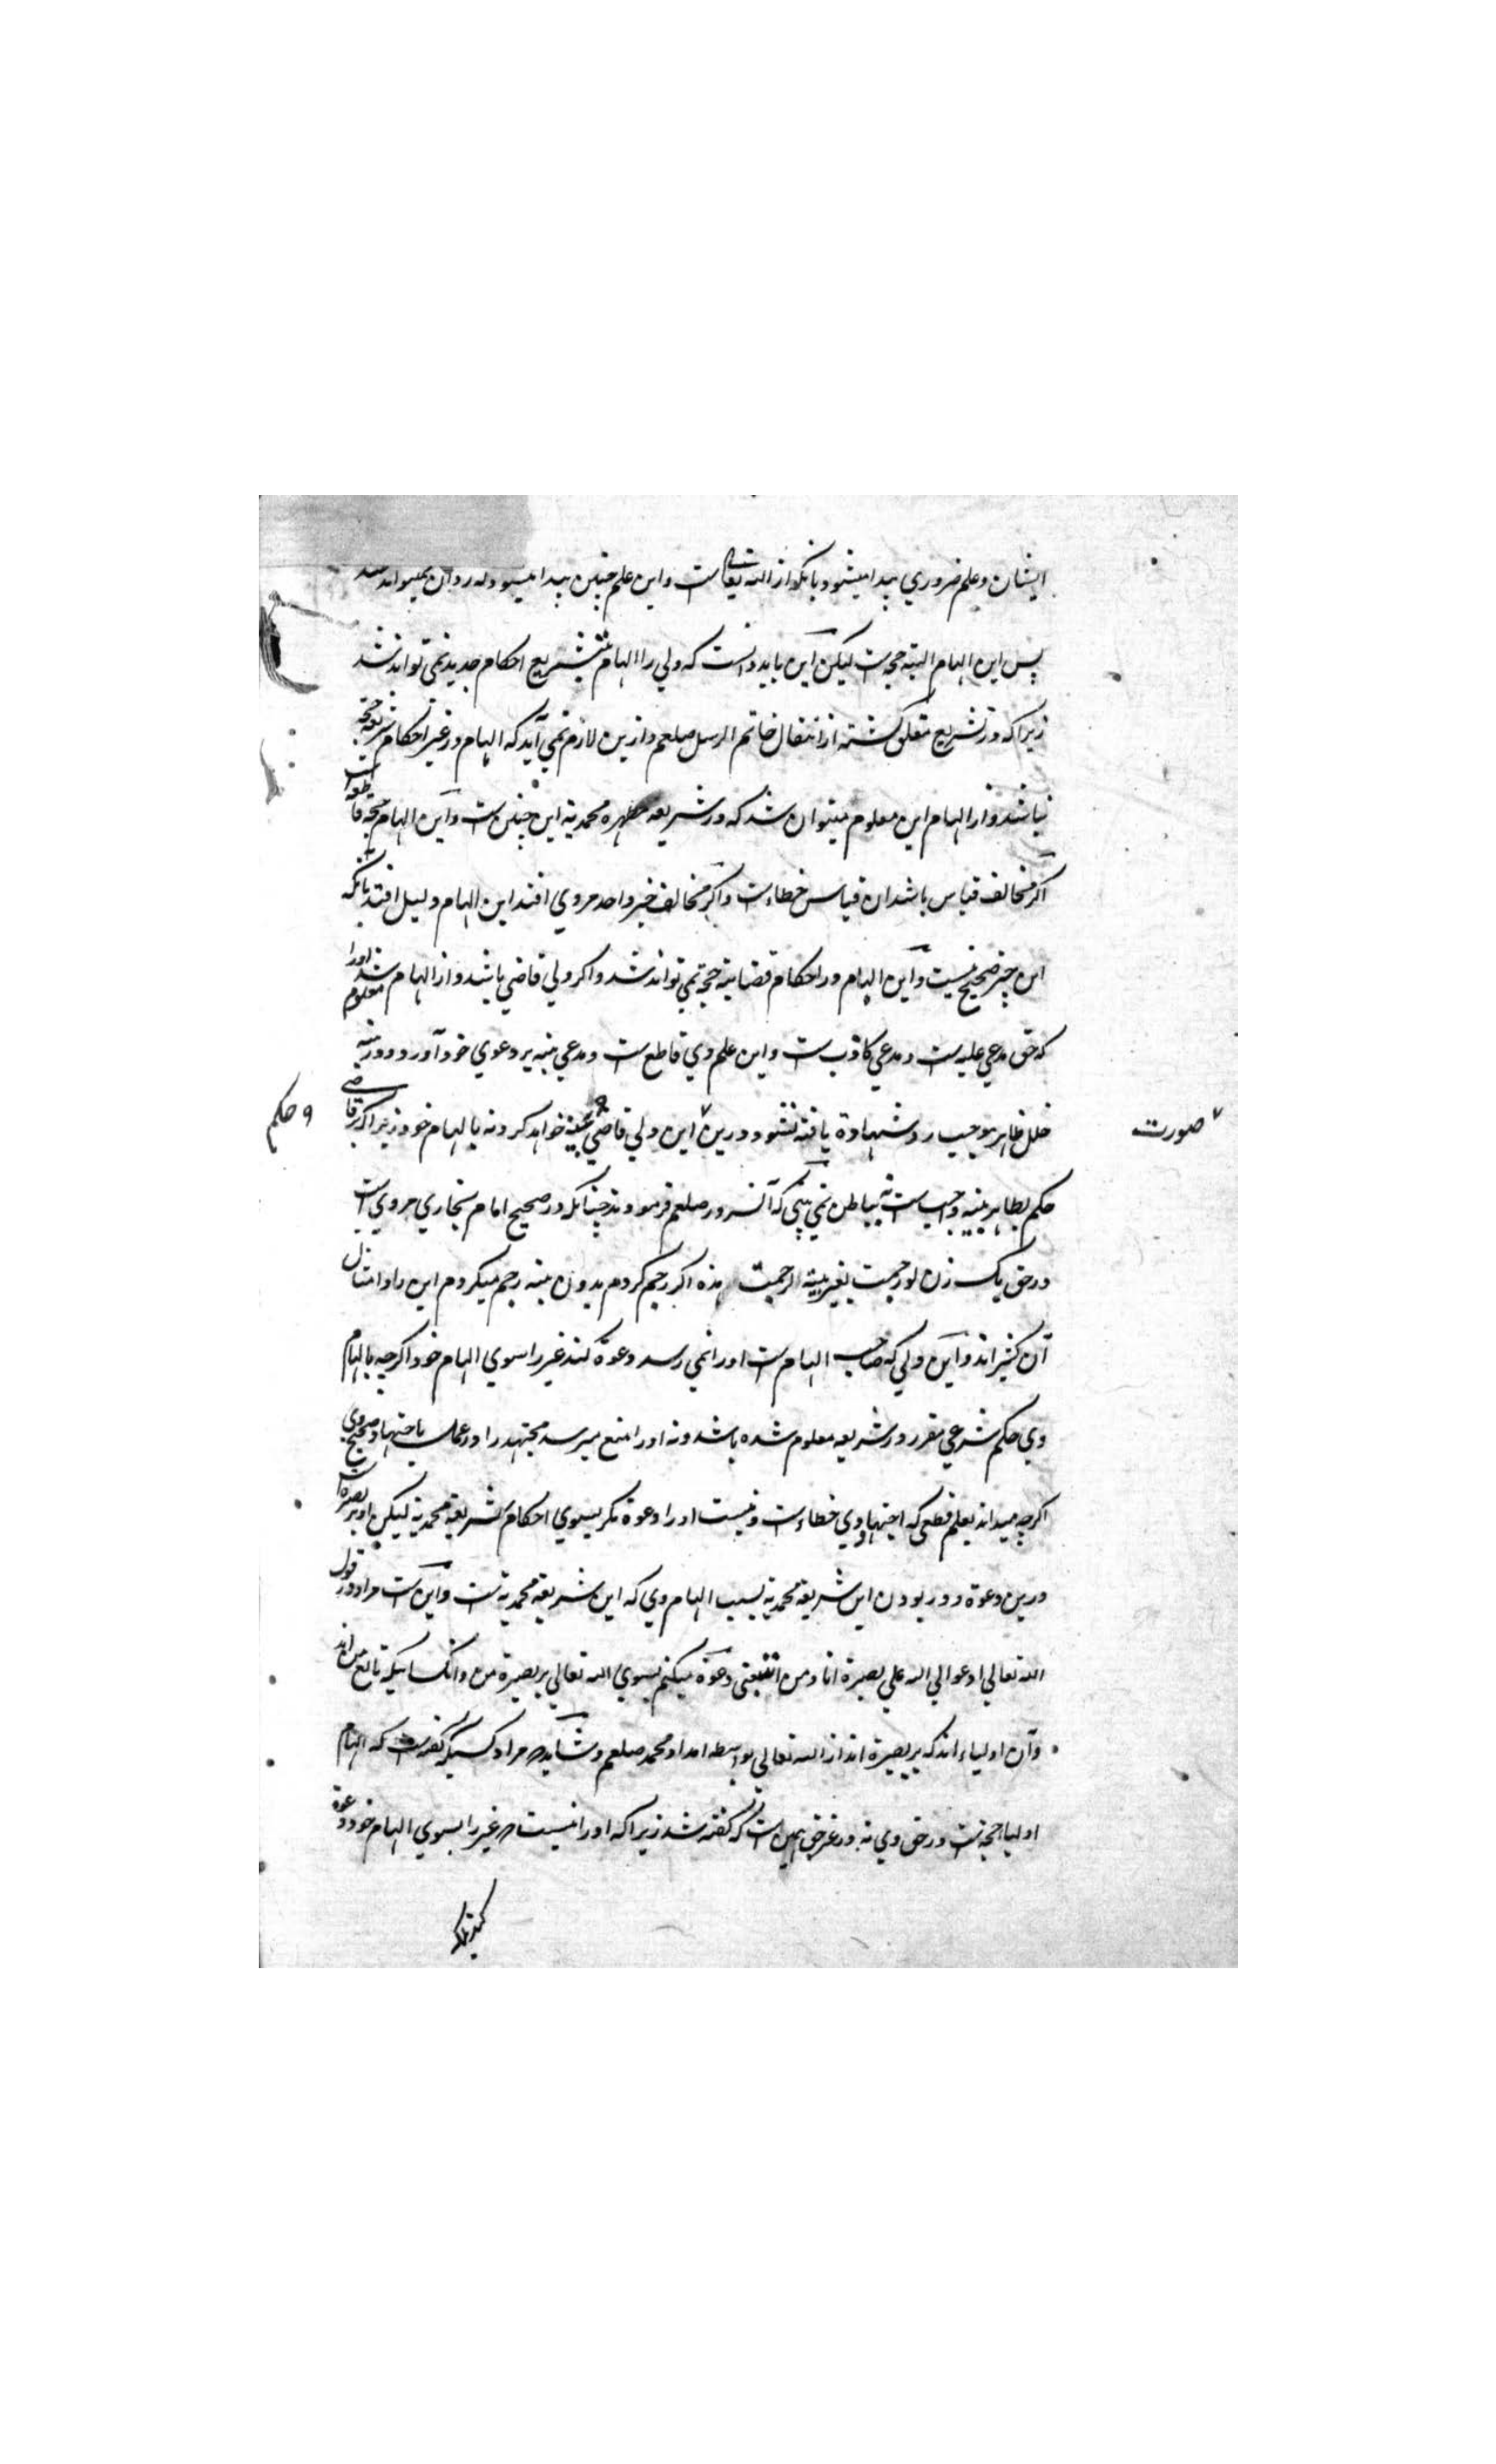 ایشان و علم ضروري پیدا میشود بآنکه از الله تعالی ست و این علم چنین پیدا میشود که رد آن نمیتواند شد
پس این الهام البته حجت ست لیکن این باید دانست که ولي را الهام بتشریع احکام جدید نمي تواند شد
زیرا که در تشریع مغلق گشته از انتقال خاتم الرسل صلعم و ازین لازم نمي آید که الهام در غیر احکام شرعیه حجة
نباشد و از الهام این معلوم میتوان شد که در شریعه مطهره محمدیة این چنین ست و این الهام حجة قاطعه است
اگر مخالف قیاس باشد ان قیاس خطاء ست و اگر مخالف خبر واحد مروي افتد این الهام دلیل افتد بآنکه
این خبر صحیح نیست و این الهام در احکام قضائیه حجة نمي تواند شد و اگر ولي قاضي باشد و از الهام او را معلوم شد
که حق مدعي علیه ست و مدعي کاذب ست و این علم وي قاطع ست و مدعي بینه بر دعوي خود آورد و در بینه
خلل ظاهر موجب رد شهادة یافته نشود و درین این ولي قاضي ببینه خواهد کرد نه بالهام خود زیرا که بر قاضي
صورت
و حکم
حکم بظاهر بینه واجب ست نه بباطن نمي بیني که آنسرور صلعم فرمودند چنانکه در صحیح امام بخاري مروي است
در حق یک زن لو رجمت بغیر بینة لرجمت هذه اگر رجم کردم بدون بینه رجم میکردم این را و امثال
آن کثیر اند و این ولي که صاحب الهام ست او را نمي رسد دعوة کند غیر را سوي الهام خود اگرچه بالهام
وي حکم شرعي مقرر در شریعه معلوم شده باشد و نه او را منع میرسد مجتهد را در عمل باجتهاد صحیح وي
اگرچه میداند بعلم قطعي که اجتهاد وي خطاء ست و نیست او را دعوة مگر بسوي احکام شریعة محمدیة لیکن او بر بصیرة است
درین دعوة و در بودن این شریعة محمدیة بسبب الهام وي که این شریعة محمدیة ست و این ست مراد در قول
الله تعالي ادعوا الي الله علي بصیرة انا و من اتبعني دعوة میکنم بسوي الله تعالي بر بصیرة من و انکسانیکه تابع من اند
و آن اولیاء اند که بر بصیرة اند از الله تعالي بواسطه امداد محمد صلعم و شاید مراد کسیکه گفته ست که الهام
اولیا حجة ست در حق وي نه در غیر حق همین است که گفته شد زیرا که او را نیست غیر را بسوي الهام خود دعوة